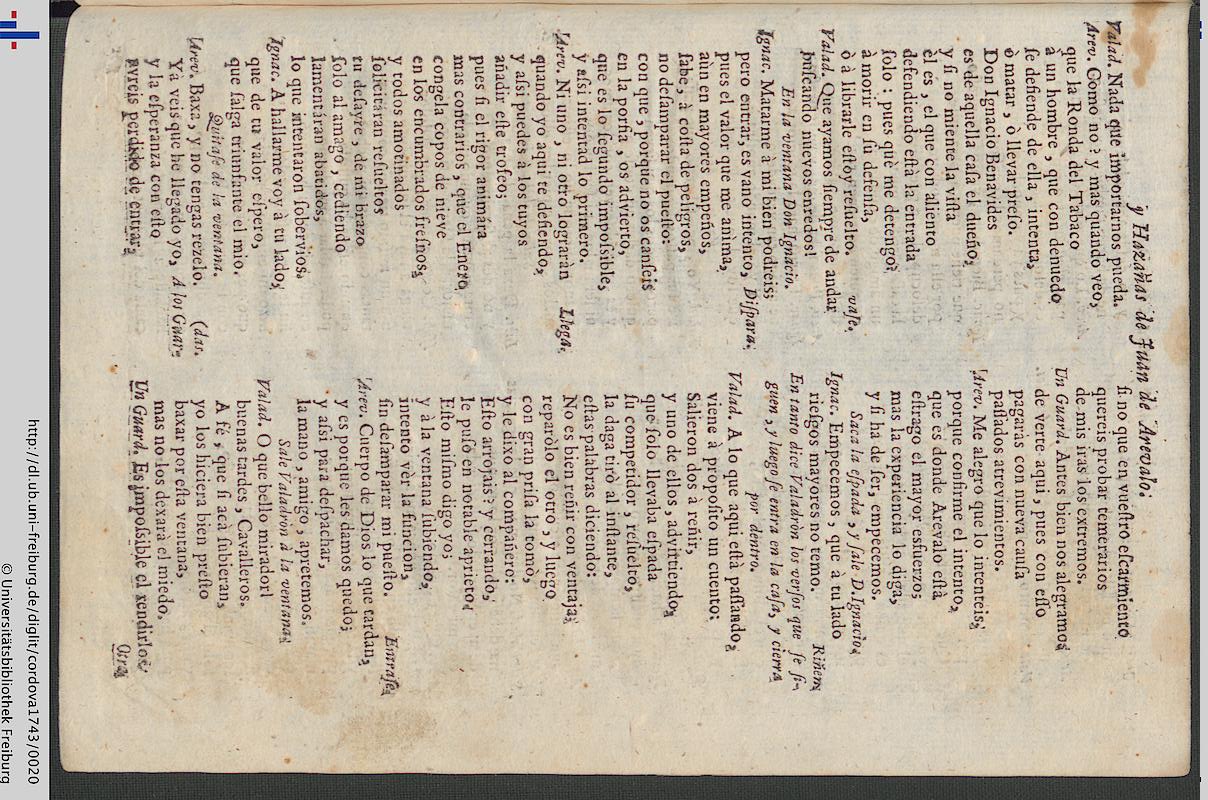 y Hazañas de Juan de Arevalo.
Valad. Nada que importarnos pueda.
Arev. Como no? y mas quando veo,
que la Ronda del Tabaco
à un hombre, que con denuedo
ſe defiende de ella, intenta,
ò matar, ò llevar preſo.
Don Ignacio Benavides
es de aquella caſa el dueño,
y ſi no miente la viſta
èl es, el que con aliento
defendiendo eſtà la entrada
ſolo: pues què me detengo?
à morir en ſu defenſa,
ò à librarle eſtoy reſuelto. vaſe.
Valad. Que ayamos ſiempre de andar
buſcando nuevos enredos!
En la ventana Don Ignacio.
Ignac. Matarme à mi bien podreis;
pero entrar, es vano intento, Diſpara.
pues el valor que me anima,
aun en mayores empeños,
ſabe, à coſta de peligros,
no deſamparar el pueſto:
con que, porque no os canſeis
en la porfia, os advierto,
que es lo ſegundo impoſsible,
y aſsi intentad lo primero.
Arev. Ni uno, ni otro lograràn Llega.
quando yo aqui te defiendo,
y aſsi puedes à los tuyos
añadir eſte trofeo;
pues ſi el rigor animàra
mas contrarios, que el Enero
congela copos de nieve
en los encumbrados freſnos,
y todos amotinados
ſolicitàran reſueltos
tu deſayre, de mi brazo
ſolo al amago, cediendo
lamentàran abatidos,
lo que intentaron ſobervios.
Ignac. A hallarme voy à tu lado,
que de tu valor eſpero,
que ſalga triunfante el mio.
Quitaſe de la ventana.
Arev. Baxa, y no tengas rezelo. (das.
Yà veis que he llegado yo, A los Guar-
y la eſperanza con eſto
avreis perdido de entrar,
ſi no que en vueſtro eſcarmiento
quereis probar temerarios
de mis iras los extremos.
Un Guard. Antes bien nos alegramos
de verte aqui, pues con eſſo
pagaràs con nueva cauſa
paſſados atrevimientos.
Arev. Me alegro que lo intenteis;
porque confirme el intento,
que es donde Arevalo eſtà
eſtrago el mayor esfuerzo;
mas la experiencia lo diga,
y ſi ha de ſer, empecemos.
Saca la eſpada, y ſale D. Ignacio.
Ignac. Empecemos, que à tu lado
rieſgos mayores no temo. Riñen.
En tanto dice Valadròn los verſos que ſe ſi-
guen, y luego ſe entra en la caſa, y cierra
por dentro.
Valad. A lo que aqui eſtà paſſando,
viene à propoſito un cuento:
Salieron dos à reñir,
y uno de ellos, advirtiendo,
que ſolo llevaba eſpada
ſu competidor, reſuelto,
la daga tirò al inſtante,
eſtas palabras diciendo:
No es bien reñir con ventaja;
reparòlo el otro, y luego
con gran priſſa la tomò,
y le dixo al compañero:
Eſto arrojais? y cerrando,
le puſo en notable aprieto:
Eſto miſmo digo yo;
y à la ventana ſubiendo,
intento vèr la funcion,
ſin deſamparar mi pueſto. Entraſe.
Arev. Cuerpo de Dios lo que tardan,
y es porque les damos quedo;
y aſsi para deſpachar,
la mano, amigo, apretemos.
Sale Valadròn à la ventana.
Valad. O que bello mirador!
buenas tardes, Cavalleros.
A fé, que ſi acà ſubieran,
yo los hiciera bien preſto
baxar por eſta ventana,
mas no los dexarà el miedo.
Un Guard. Es impoſsible el rendirlos.
Otra
http://dl.ub.uni-freiburg.de/diglit/cordova1743/0020
© Universitätsbibliothek Freiburg